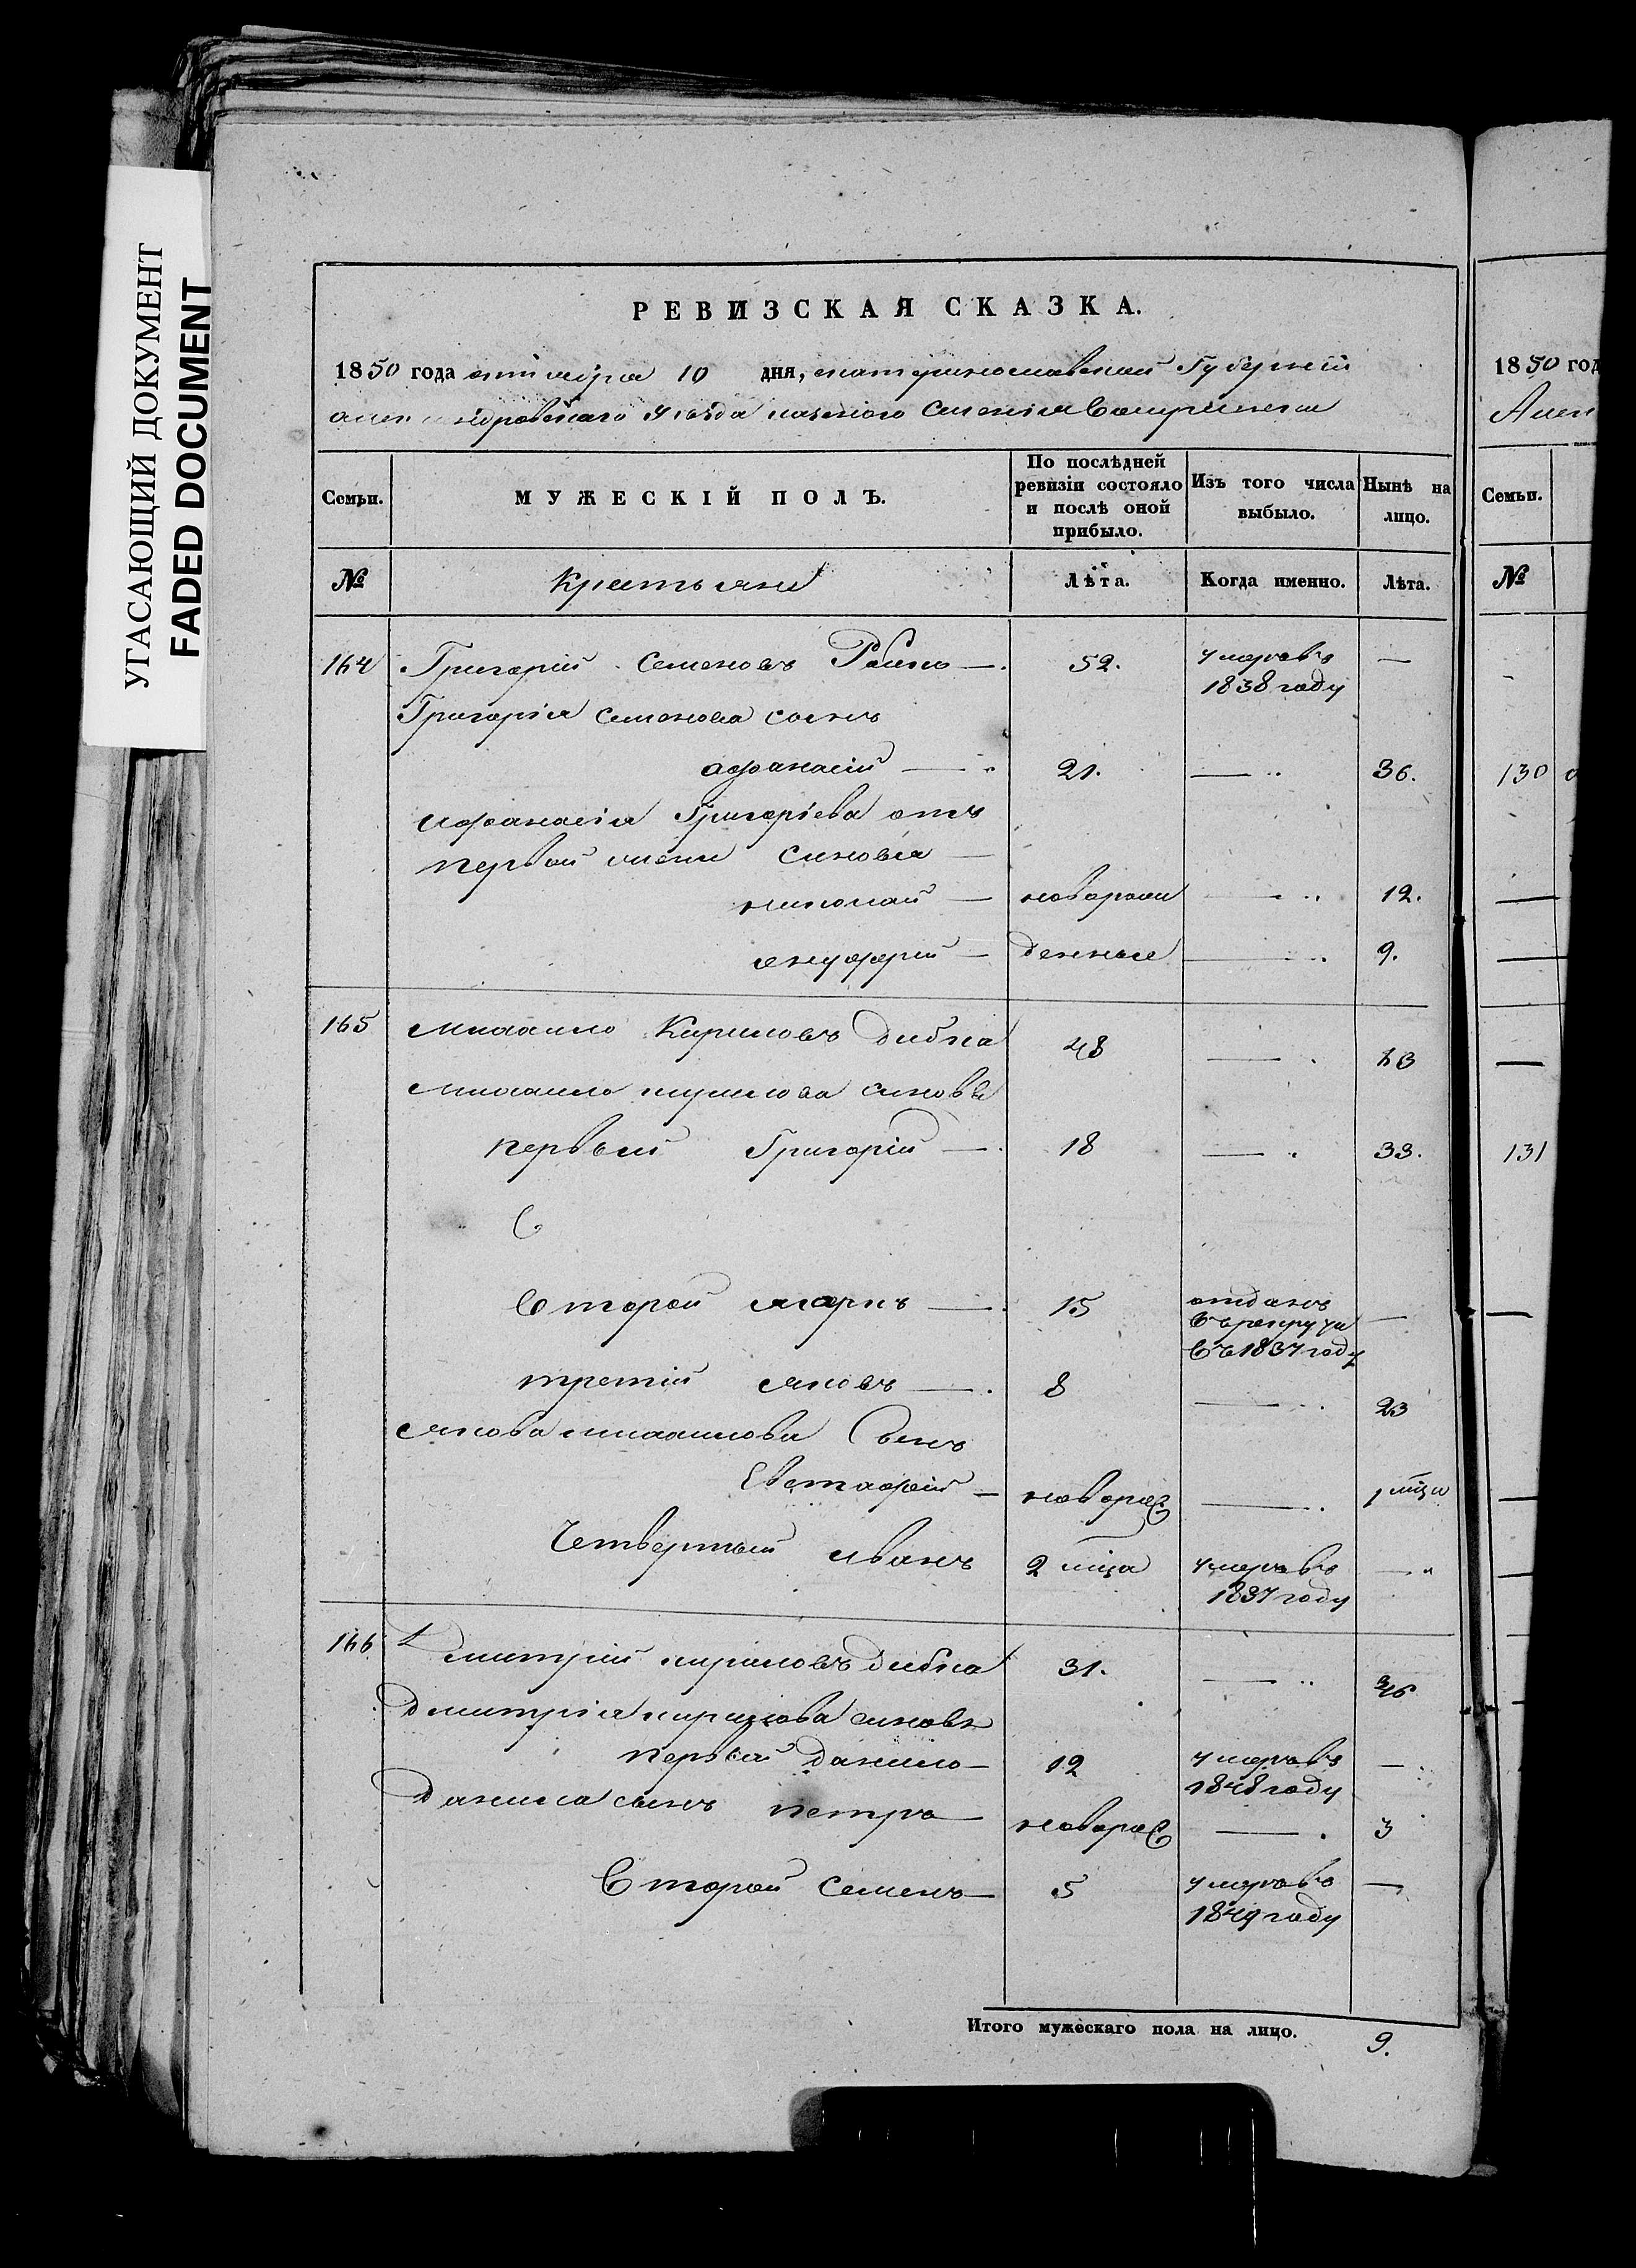 УГАСАЮЩИЙ ДОКУМЕНТ
FADED DOCUMENT
РЕВИЗСКАЯ СКАЗКА.
1850 года октября 10 дня, екатеринославской Губерніи
александровскаго уѣзда казеннаго Селенія
Семьи. МУЖЕСКІЙ ПОЛЪ. По послѣдней ревизіи состояло и послѣ оной прибыло. Изъ того числа выбыло. Нынѣ на лицо.
№ Крестьяне Лѣта. Когда именно. Лѣта.
164 Григорій Семеновъ 52. умеръ въ —
1838 году
Григорія Семенова сынъ
афанасій — 21. — 36.
Афанасія Григоріева отъ
первой жены сыновья —
николай — новорож — 12.
онуфрій — денные — 9.
165 Михаило Кириловъ Дибка 48 — 63
Михаило кирилова сыновья
первый Григорій — 18 — 33.
Второй маркъ — 15 отданъ —
въ рекруты
въ 1837 году
третій яковъ — 8 — 23
Якова михаилова Сынъ
Евстафій — новорож — 1 мѣца
Четвертый иванъ 2 мѣца умеръ въ —
1837 году
166 Дмитрій кириловъ дибка 31. — 46
Дмитрія кирилова сыновья
первый Данило — 12 умеръ въ —
1848 году
Данила сынъ петръ — новорож — 3
Второй Семенъ — 5 умеръ въ —
1849 году
Итого мужескаго пола на лицо. 9.
1850 год
Алек
Семьи.
№
130
131